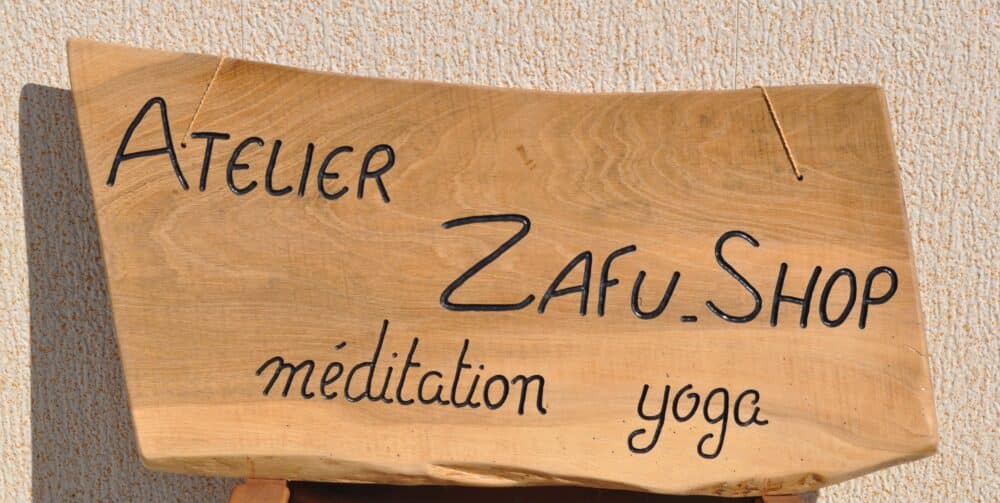 ATELIER
ZAFU-SHOP
méditation yoga